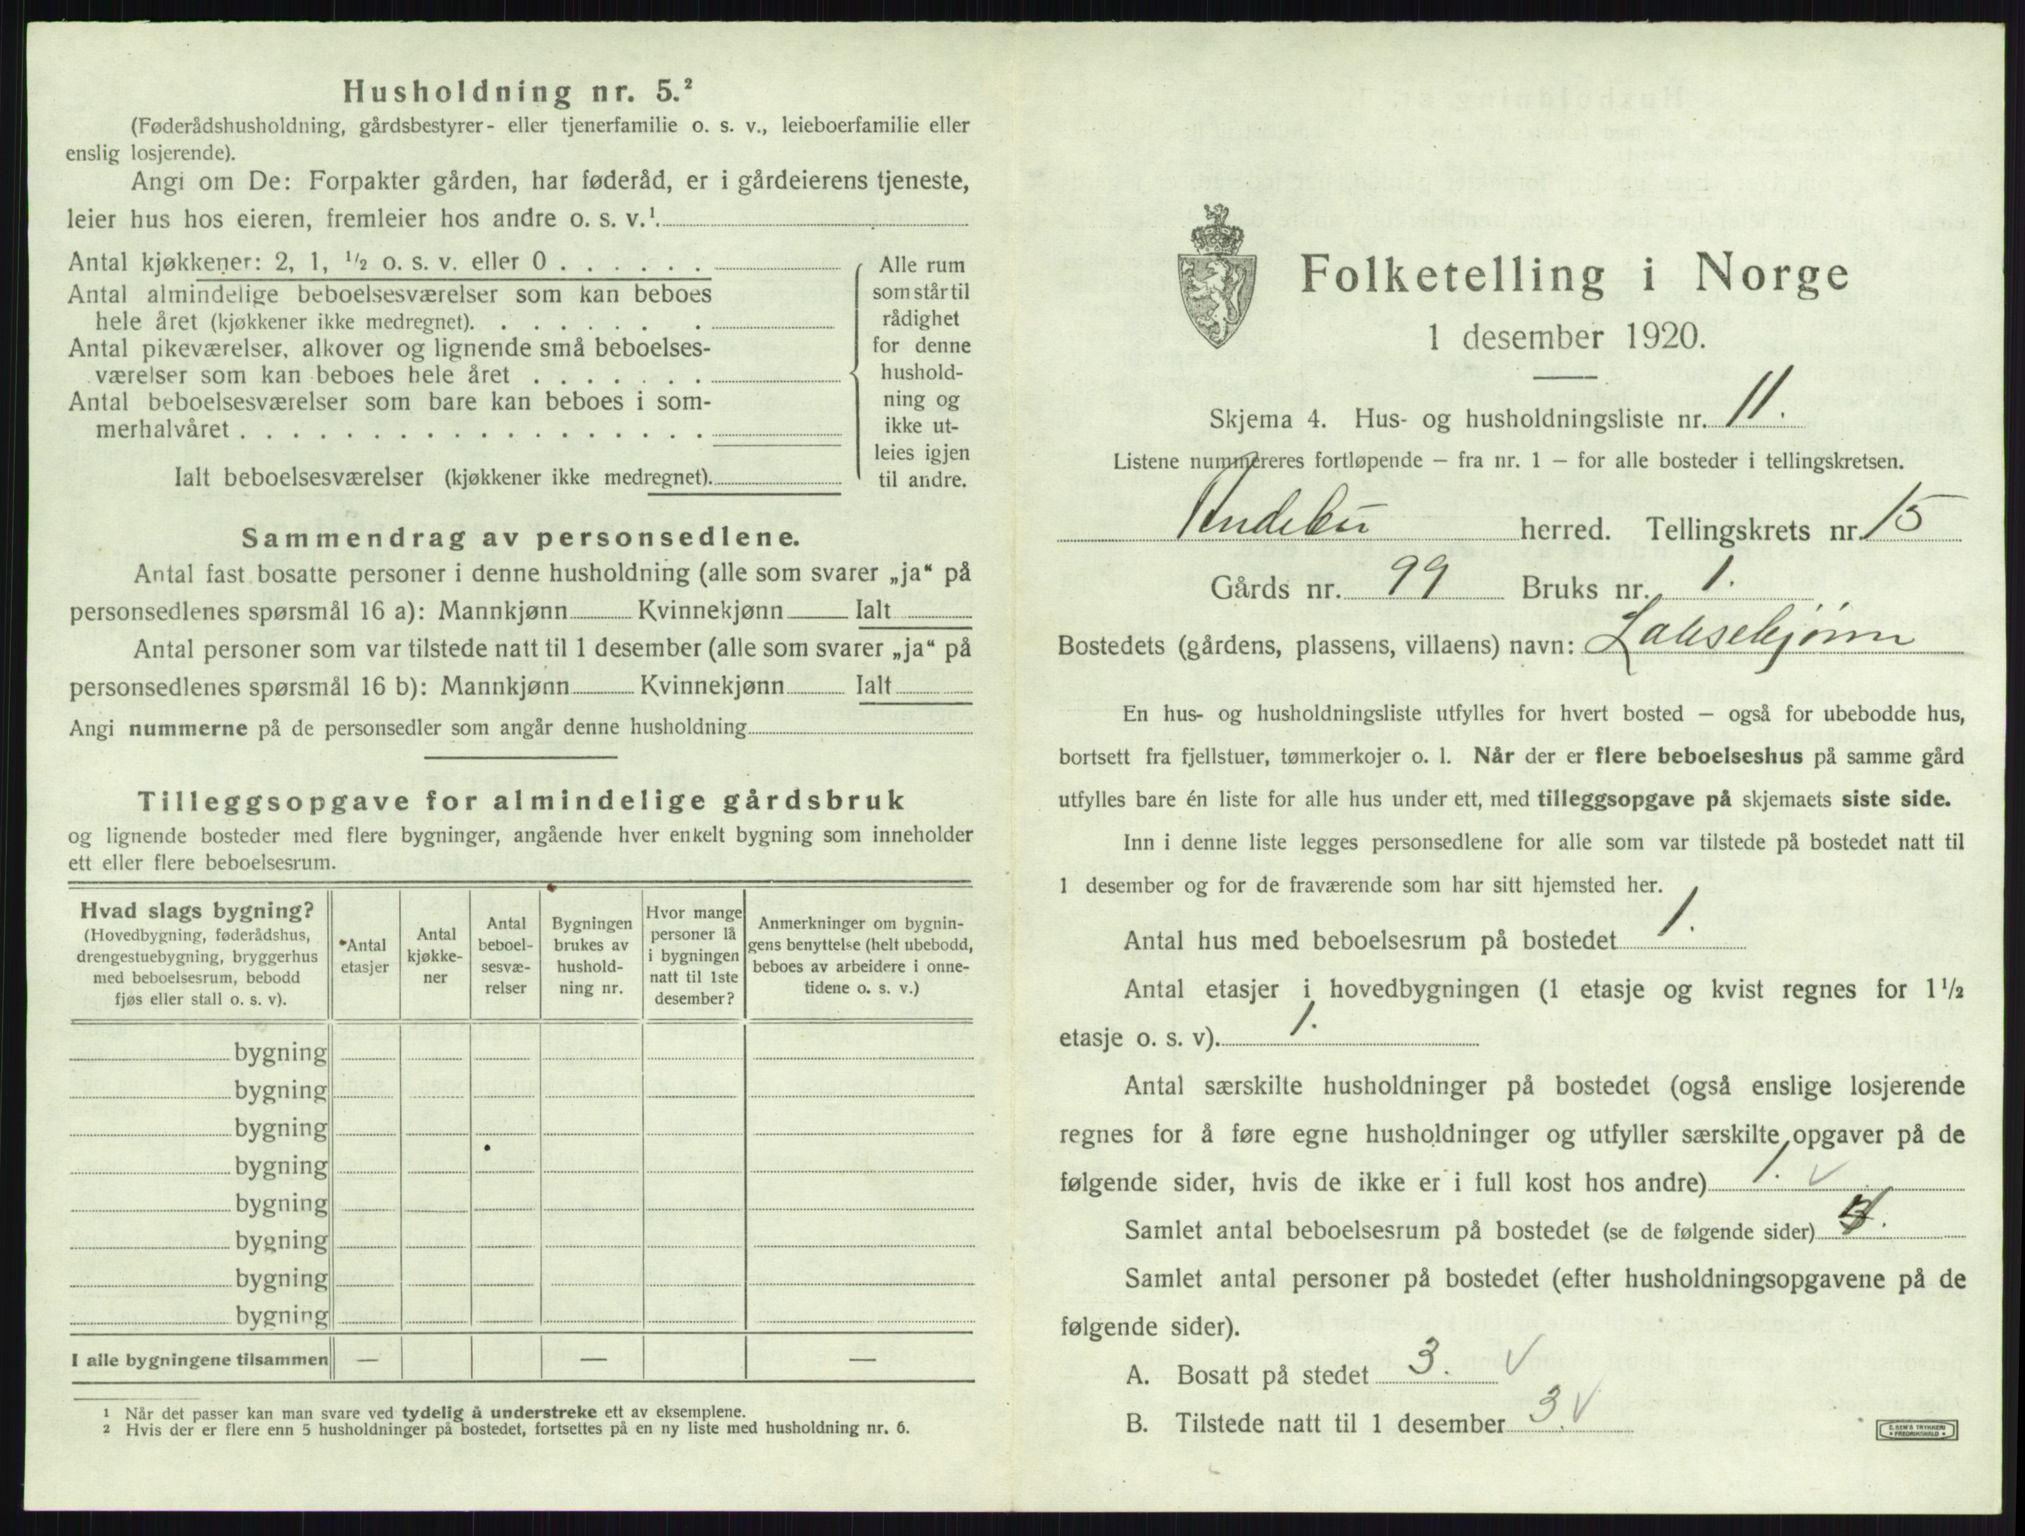 Husholdning nr. 5.²
(Føderådshusholdning, gårdsbestyrer- eller tjenerfamilie o. s. v., leieboerfamilie eller
enslig losjerende).
Angi om De: Forpakter gården, har føderåd, er i gårdeierens tjeneste,
leier hus hos eieren, fremleier hos andre o. s. v.¹.
Antal kjøkkener: 2, 1, ½ o. s. v. eller 0 . . . . . .
Antal almindelige beboelsesværelser som kan beboes
hele året (kjøkkener ikke medregnet). . . . . . . . .
Antal pikeværelser, alkover og lignende små beboelses-
værelser som kan beboes hele året . . . . . . .
Antal beboelsesværelser som bare kan beboes i som-
merhalvåret . . . . . . . . . . . . . . . . . .
Ialt beboelsesværelser (kjøkkener ikke medregnet).
Alle rum
som står til
rådighet
for denne
hushold-
ning og
ikke ut-
leies igjen
til andre.
Sammendrag av personsedlene.
Antal fast bosatte personer i denne husholdning (alle som svarer „ja“ på
personsedlenes spørsmål 16 a): Mannkjønn Kvinnekjønn Ialt
Antal personer som var tilstede natt til 1 desember (alle som svarer „ja“ på
personsedlenes spørsmål 16 b): Mannkjønn Kvinnekjønn Ialt
Angi nummerne på de personsedler som angår denne husholdning
Tilleggsopgave for almindelige gårdsbruk
og lignende bosteder med flere bygninger, angående hver enkelt bygning som inneholder
ett eller flere beboelsesrum.
Hvad slags bygning?
(Hovedbygning, føderådshus,
drengestuebygning, bryggerhus
med beboelsesrum, bebodd
fjøs eller stall o. s. v).
Antal
etasjer
Antal
kjøkke-
ner
Antal
beboel-
sesvæ-
relser
Bygningen
brukes av
hushold-
ning nr.
Hvor mange
personer lå
i bygningen
natt til 1ste
desember?
Anmerkninger om bygnin-
gens benyttelse (helt ubebodd,
beboes av arbeidere i onne-
tidene o. s. v.)
bygning
bygning
bygning
bygning
bygning
bygning
bygning
bygning
I alle bygningene tilsammen — — —
¹ Når det passer kan man svare ved tydelig å understreke ett av eksemplene.
² Hvis der er flere enn 5 husholdninger på bostedet, fortsettes på en ny liste med husholdning nr. 6.
Folketelling i Norge
1 desember 1920.
Skjema 4. Hus- og husholdningsliste nr. 11.
Listene nummereres fortløpende — fra nr. 1 — for alle bosteder i tellingskretsen.
Andebu herred. Tellingskrets nr. 15
Gårds nr. 99 Bruks nr. 1.
Bostedets (gårdens, plassens, villaens) navn: Laksekjønn
En hus- og husholdningsliste utfylles for hvert bosted — også for ubebodde hus,
bortsett fra fjellstuer, tømmerkojer o. l. Når der er flere beboelseshus på samme gård
utfylles bare én liste for alle hus under ett, med tilleggsopgave på skjemaets siste side.
Inn i denne liste legges personsedlene for alle som var tilstede på bostedet natt til
1 desember og for de fraværende som har sitt hjemsted her.
Antal hus med beboelsesrum på bostedet 1.
Antal etasjer i hovedbygningen (1 etasje og kvist regnes for 1½
etasje o. s. v). 1.
Antal særskilte husholdninger på bostedet (også enslige losjerende
regnes for å føre egne husholdninger og utfyller særskilte opgaver på de
følgende sider, hvis de ikke er i full kost hos andre) 1. ✓
Samlet antal beboelsesrum på bostedet (se de følgende sider)
Samlet antal personer på bostedet (efter husholdningsopgavene på de
følgende sider).
A. Bosatt på stedet 3. ✓
B. Tilstede natt til 1 desember 3. ✓